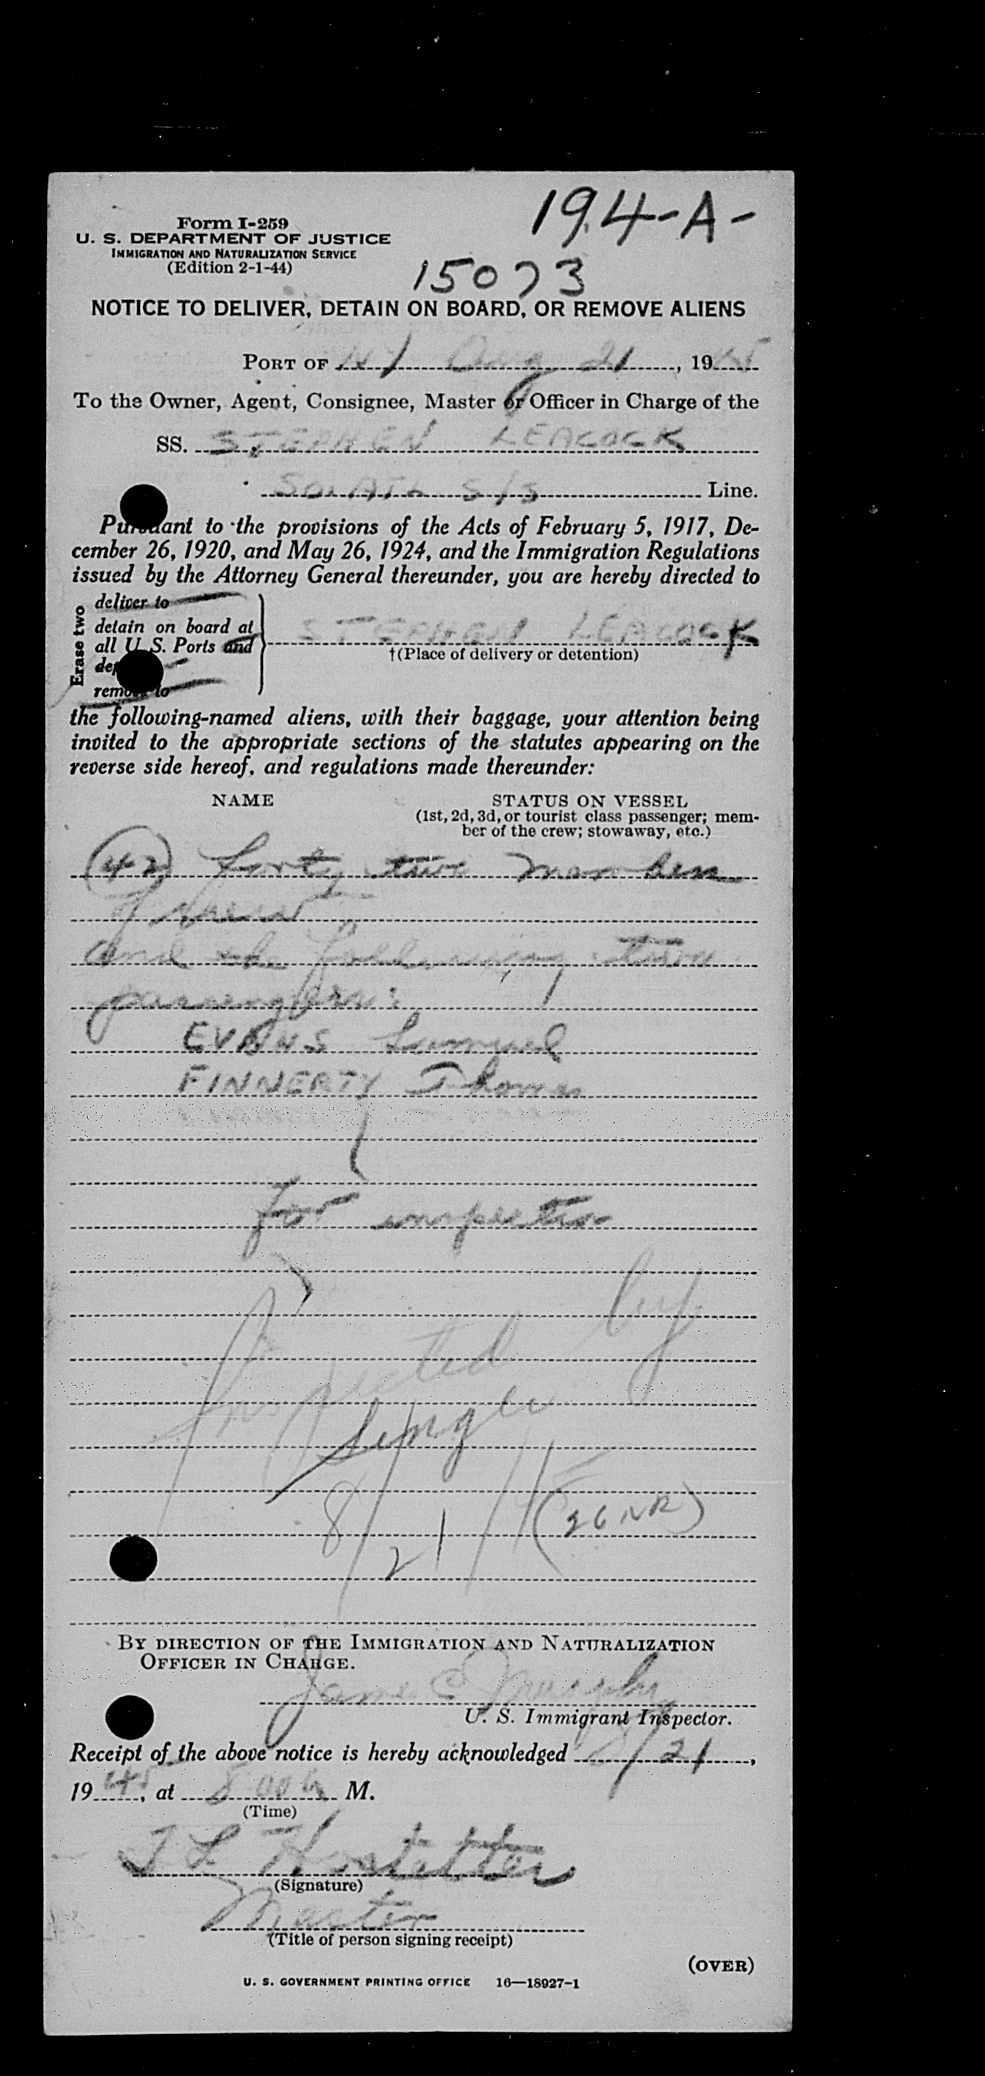 194-A-
15073
Form I-259
U. S. DEPARTMENT OF JUSTICE
IMMIGRATION AND NATURALIZATION SERVICE
(Edition 2-1-44)
NOTICE TO DELIVER, DETAIN ON BOARD, OR REMOVE ALIENS
PORT OF NY Aug 21, 1945
To the Owner, Agent, Consignee, Master or Officer in Charge of the
SS. STEPHEN LEACOCK
SO. ATL S/S Line.
Pursuant to the provisions of the Acts of February 5, 1917, De-
cember 26, 1920, and May 26, 1924, and the Immigration Regulations
issued by the Attorney General thereunder, you are hereby directed to
Erase two
deliver to
detain on board at
all U. S. Ports and
remove to
STEPHEN LEACOCK
†(Place of delivery or detention)
the following-named aliens, with their baggage, your attention being
invited to the appropriate sections of the statutes appearing on the
reverse side hereof, and regulations made thereunder:
NAME STATUS ON VESSEL
(1st, 2d, 3d, or tourist class passenger; mem-
ber of the crew; stowaway, etc.)
(42) forty two members
of crew
and the following two
passengers:
EVANS Samuel
FINNERTY Thomas
for inspection
Inspected by
8/21/45 (26 NR)
BY DIRECTION OF THE IMMIGRATION AND NATURALIZATION
OFFICER IN CHARGE.
James C Murphy
U. S. Immigrant Inspector.
Receipt of the above notice is hereby acknowledged 8/21,
1945, at 800 a M.
(Time)
J L Hostetter
(Signature)
Master
(Title of person signing receipt)
(OVER)
U. S. GOVERNMENT PRINTING OFFICE 16—18927-1